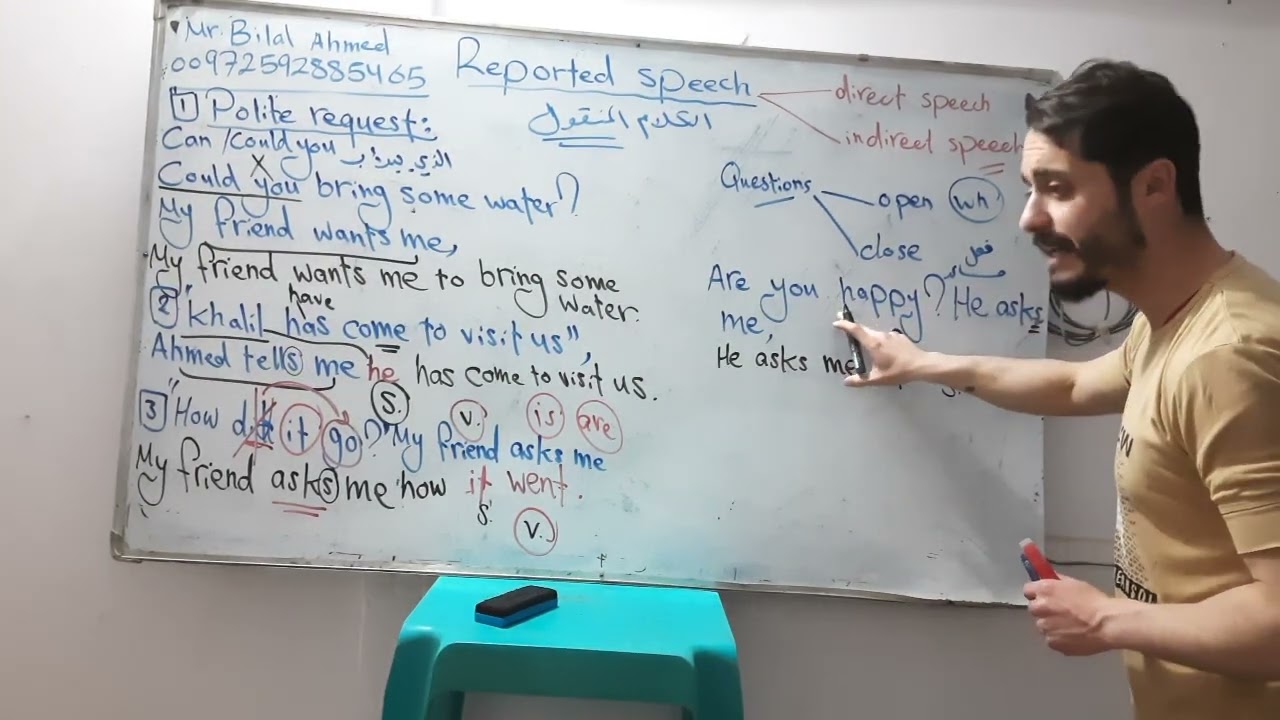 Mr. Bilal Ahmed
00972592885465
1 Polite request:
Can / Could you
X
Could you bring some water?
My friend wants me,
My friend wants me to bring some
water.
have
2 "Khalil has come to visit us",
Ahmed tells me he has come to visit us.
S.
V. is are
3 "How did it go?" My friend asks me
My friend asks me how it went.
S.
V.
Reported speech
الكلام المنقول
direct speech
indirect speech
Questions
open wh
close
Are you happy? He asks
me,
He asks me
S.